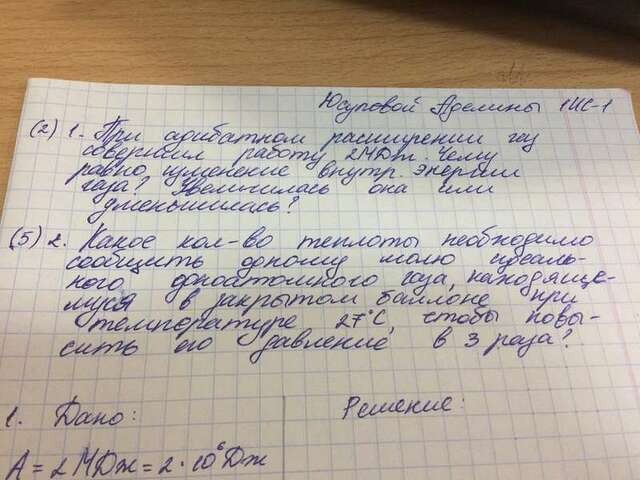 Юсуповой Аделины 1ИС-1
(2) 1. При адибатном расширении газ
совершил работу 2МДж. Чему
равно изменение внутр. энергии
газа? Увеличилась она или
уменьшилась?
(5) 2. Какое кол-во теплоты необходимо
сообщить одному молю идеаль-
ного одноатомного газа, находяще-
муся в закрытом баллоне при
температуре 27°С, чтобы повы-
сить его давление в 3 раза?
1. Дано: Решение:
А = 2 МДж = 2 · 10⁶ Дж